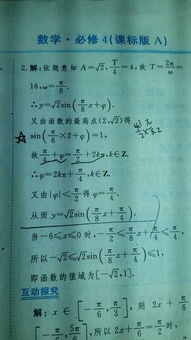 数学·必修4(课标版 A)
2.解:依题意知 A=√2, T/4=4,故 T=2π/ω=
16,ω=π/8.
∴y=√2sin(π/8 x+φ).
又由函数的最高点(2,√2)得
sin(π/8×2+φ)=1,
故π/4+φ=π/2+2kπ,k∈Z.
∴φ=2kπ+π/4,k∈Z.
又由|φ|<π/2得 φ=π/4.
从而 y=√2sin(π/8 x+π/4).
当-6≤x≤0 时,-π/2≤π/8 x+π/4≤π/4,
所以-√2≤√2sin(π/8 x+π/4)≤1,
即函数的值域为[-√2,1].
互动探究
解:x∈[-π/6,π/3],则 2x+π/6
∈[-π/6,5π/6],所以 2x+π/6=π/2时,